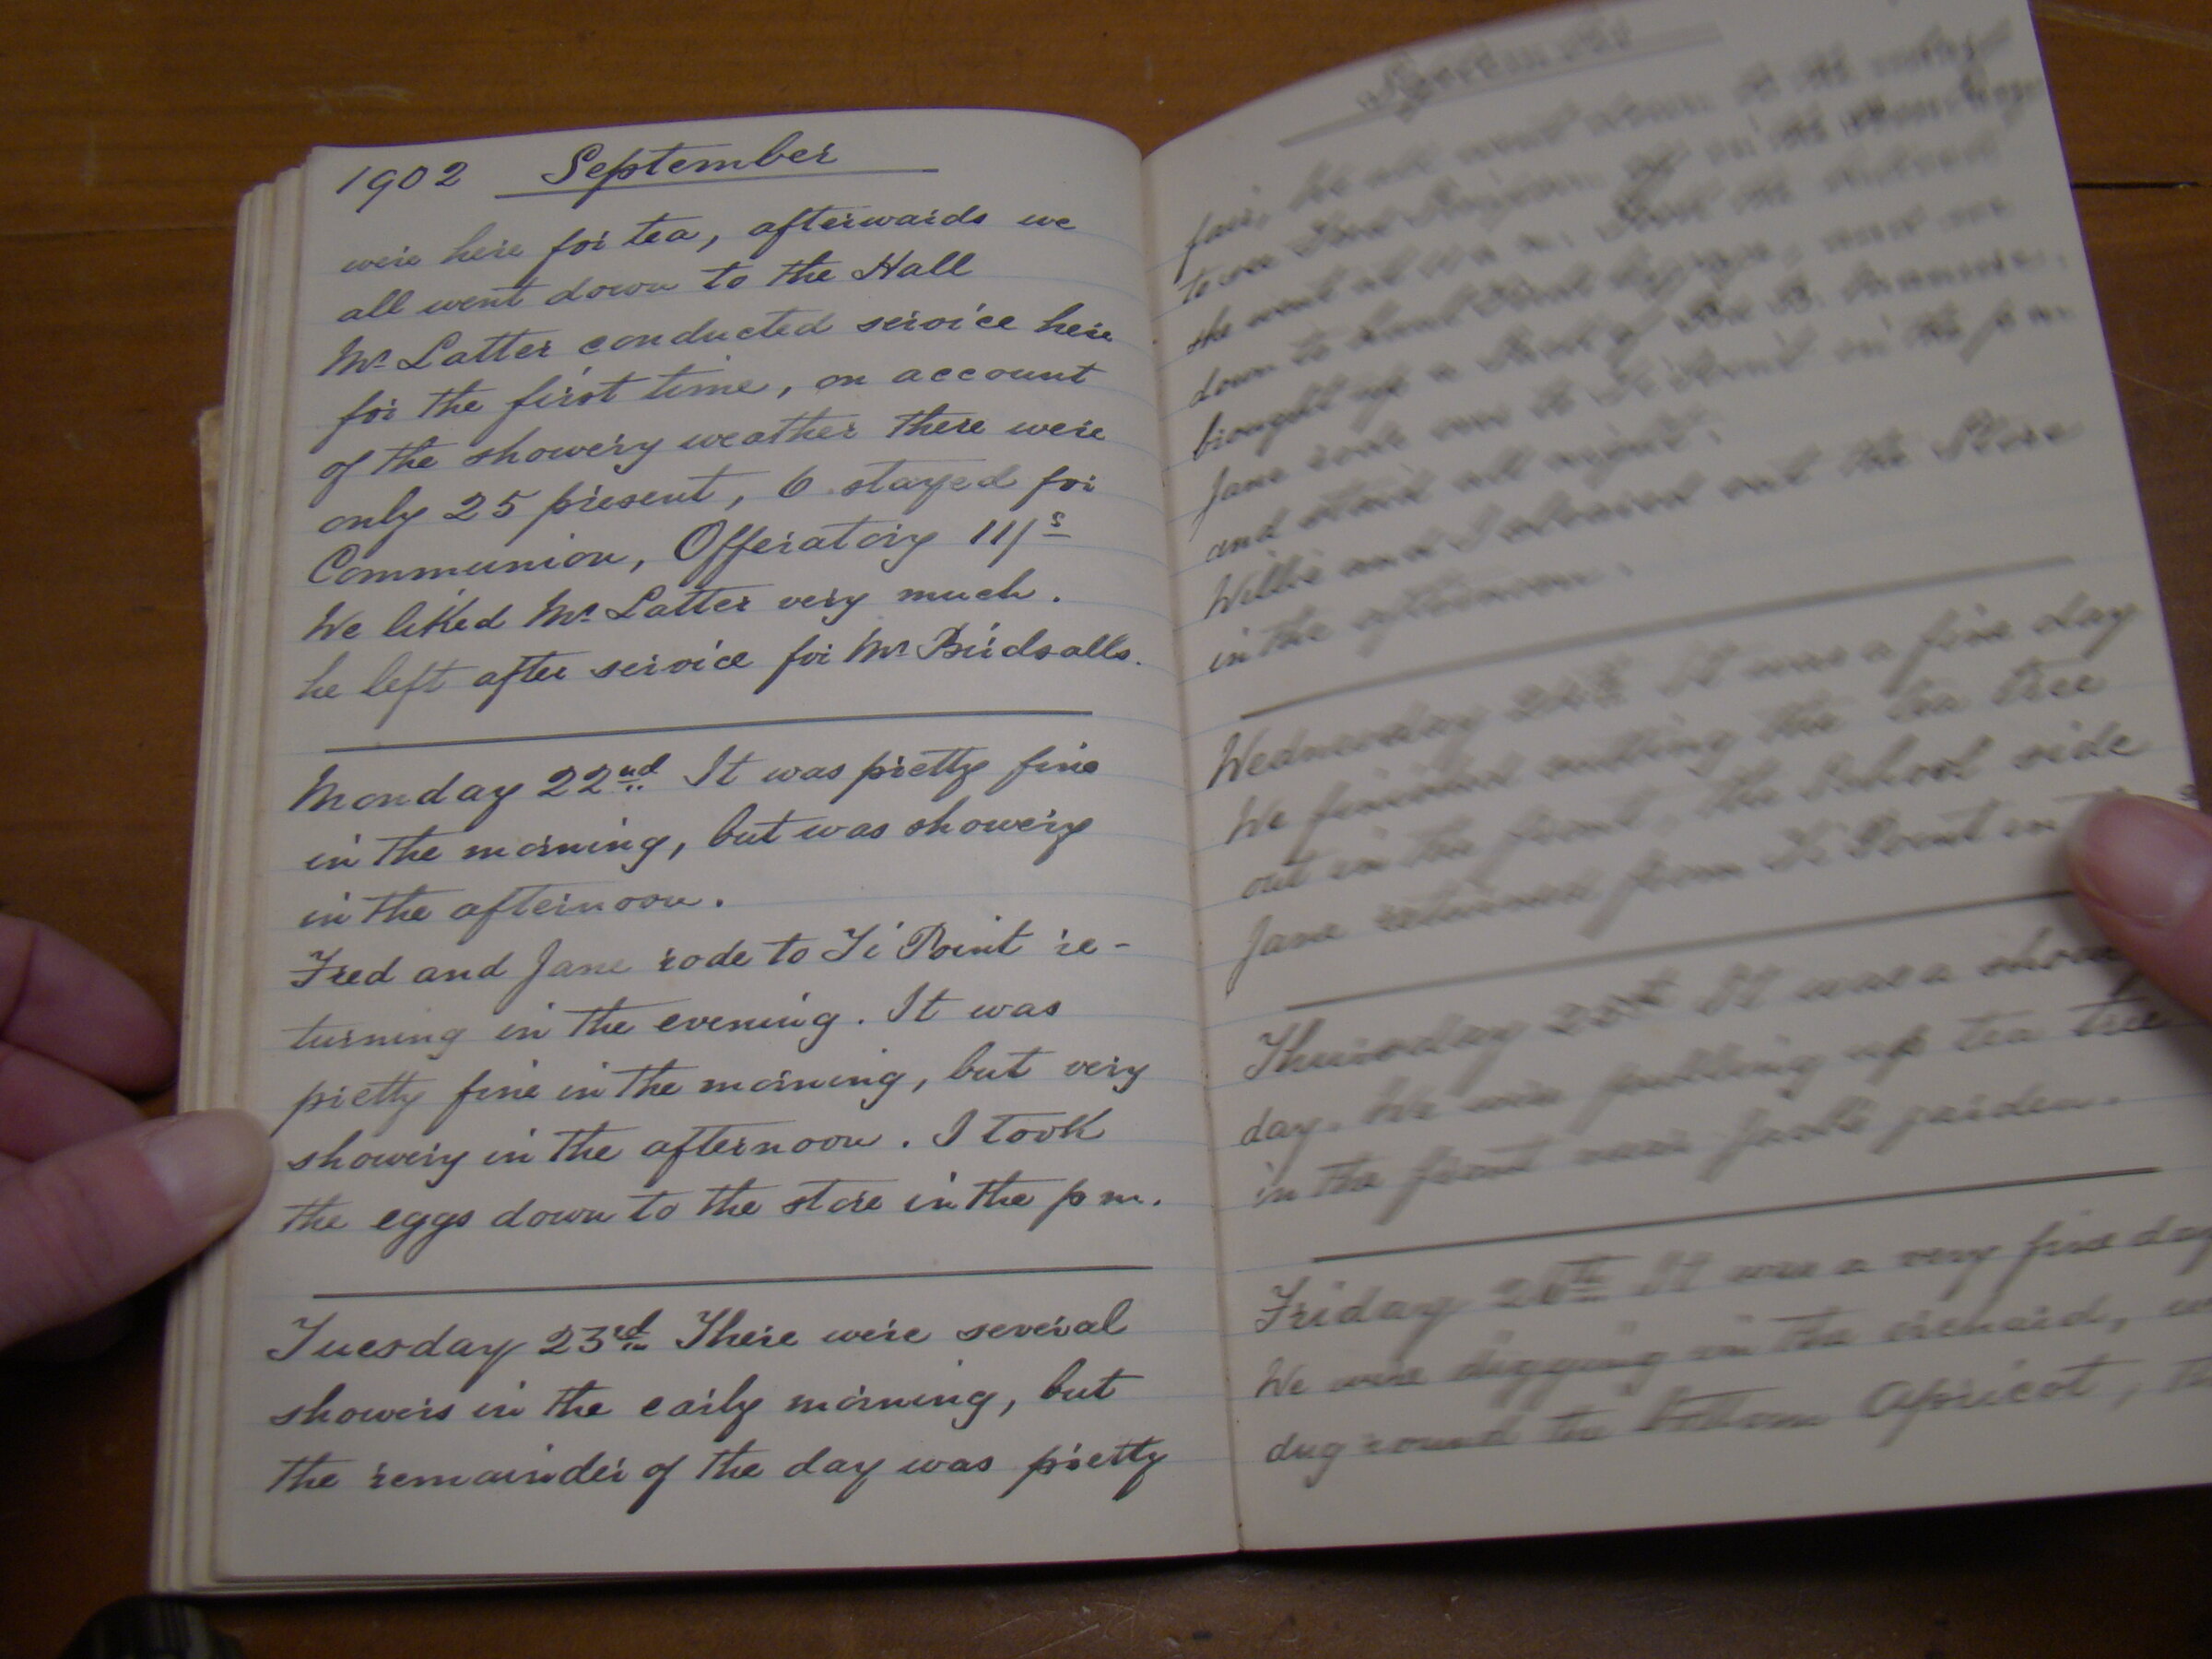 1902 September
were here for tea, afterwards we
all went down to the Hall
Mr Latter conducted service here
for the first time, on account
of the showery weather there were
only 25 present, 6 stayed for
Communion, Offeratory 11/s
We liked Mr Latter very much.
he left after service for Mr Birdsalls.
Monday 22nd It was pretty fine
in the morning, but was showery
in the afternoon.
Fred and Jane rode to Ti Point re-
turning in the evening. It was
pretty fine in the morning, but very
showery in the afternoon. I took
the eggs down to the store in the p m.
Tuesday 23rd There were several
showers in the early morning, but
the remainder of the day was pretty
September
fair, We all went down to the
to see
she went at
down to and we
brought up a of
Jane rode over to Ti Point in the p m.
and staid all night.
Willie and I cleaned out the Store
in the afternoon.
Wednesday 24th It was a fine day
We finished cutting the tea tree
out in the front, the School side
Jane returned from Ti Point in
Thursday 25th It was a showery
day. We were pulling up tea tree
in the front near Jack's garden.
Friday 26th It was a very fine day
We were digging in the orchard,
dug round the bottom Apricot,